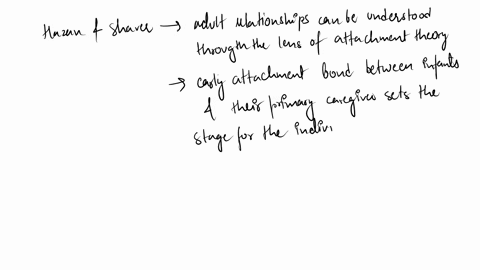 Hazan & Shaver → adult relationships can be understood
through the lens of attachment theory
→ early attachment bond between infants
& their primary caregiver sets the
stage for the indivi